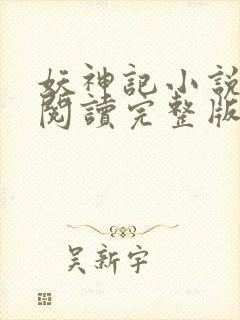 妖神記小說
閱讀完整版
吴新宇